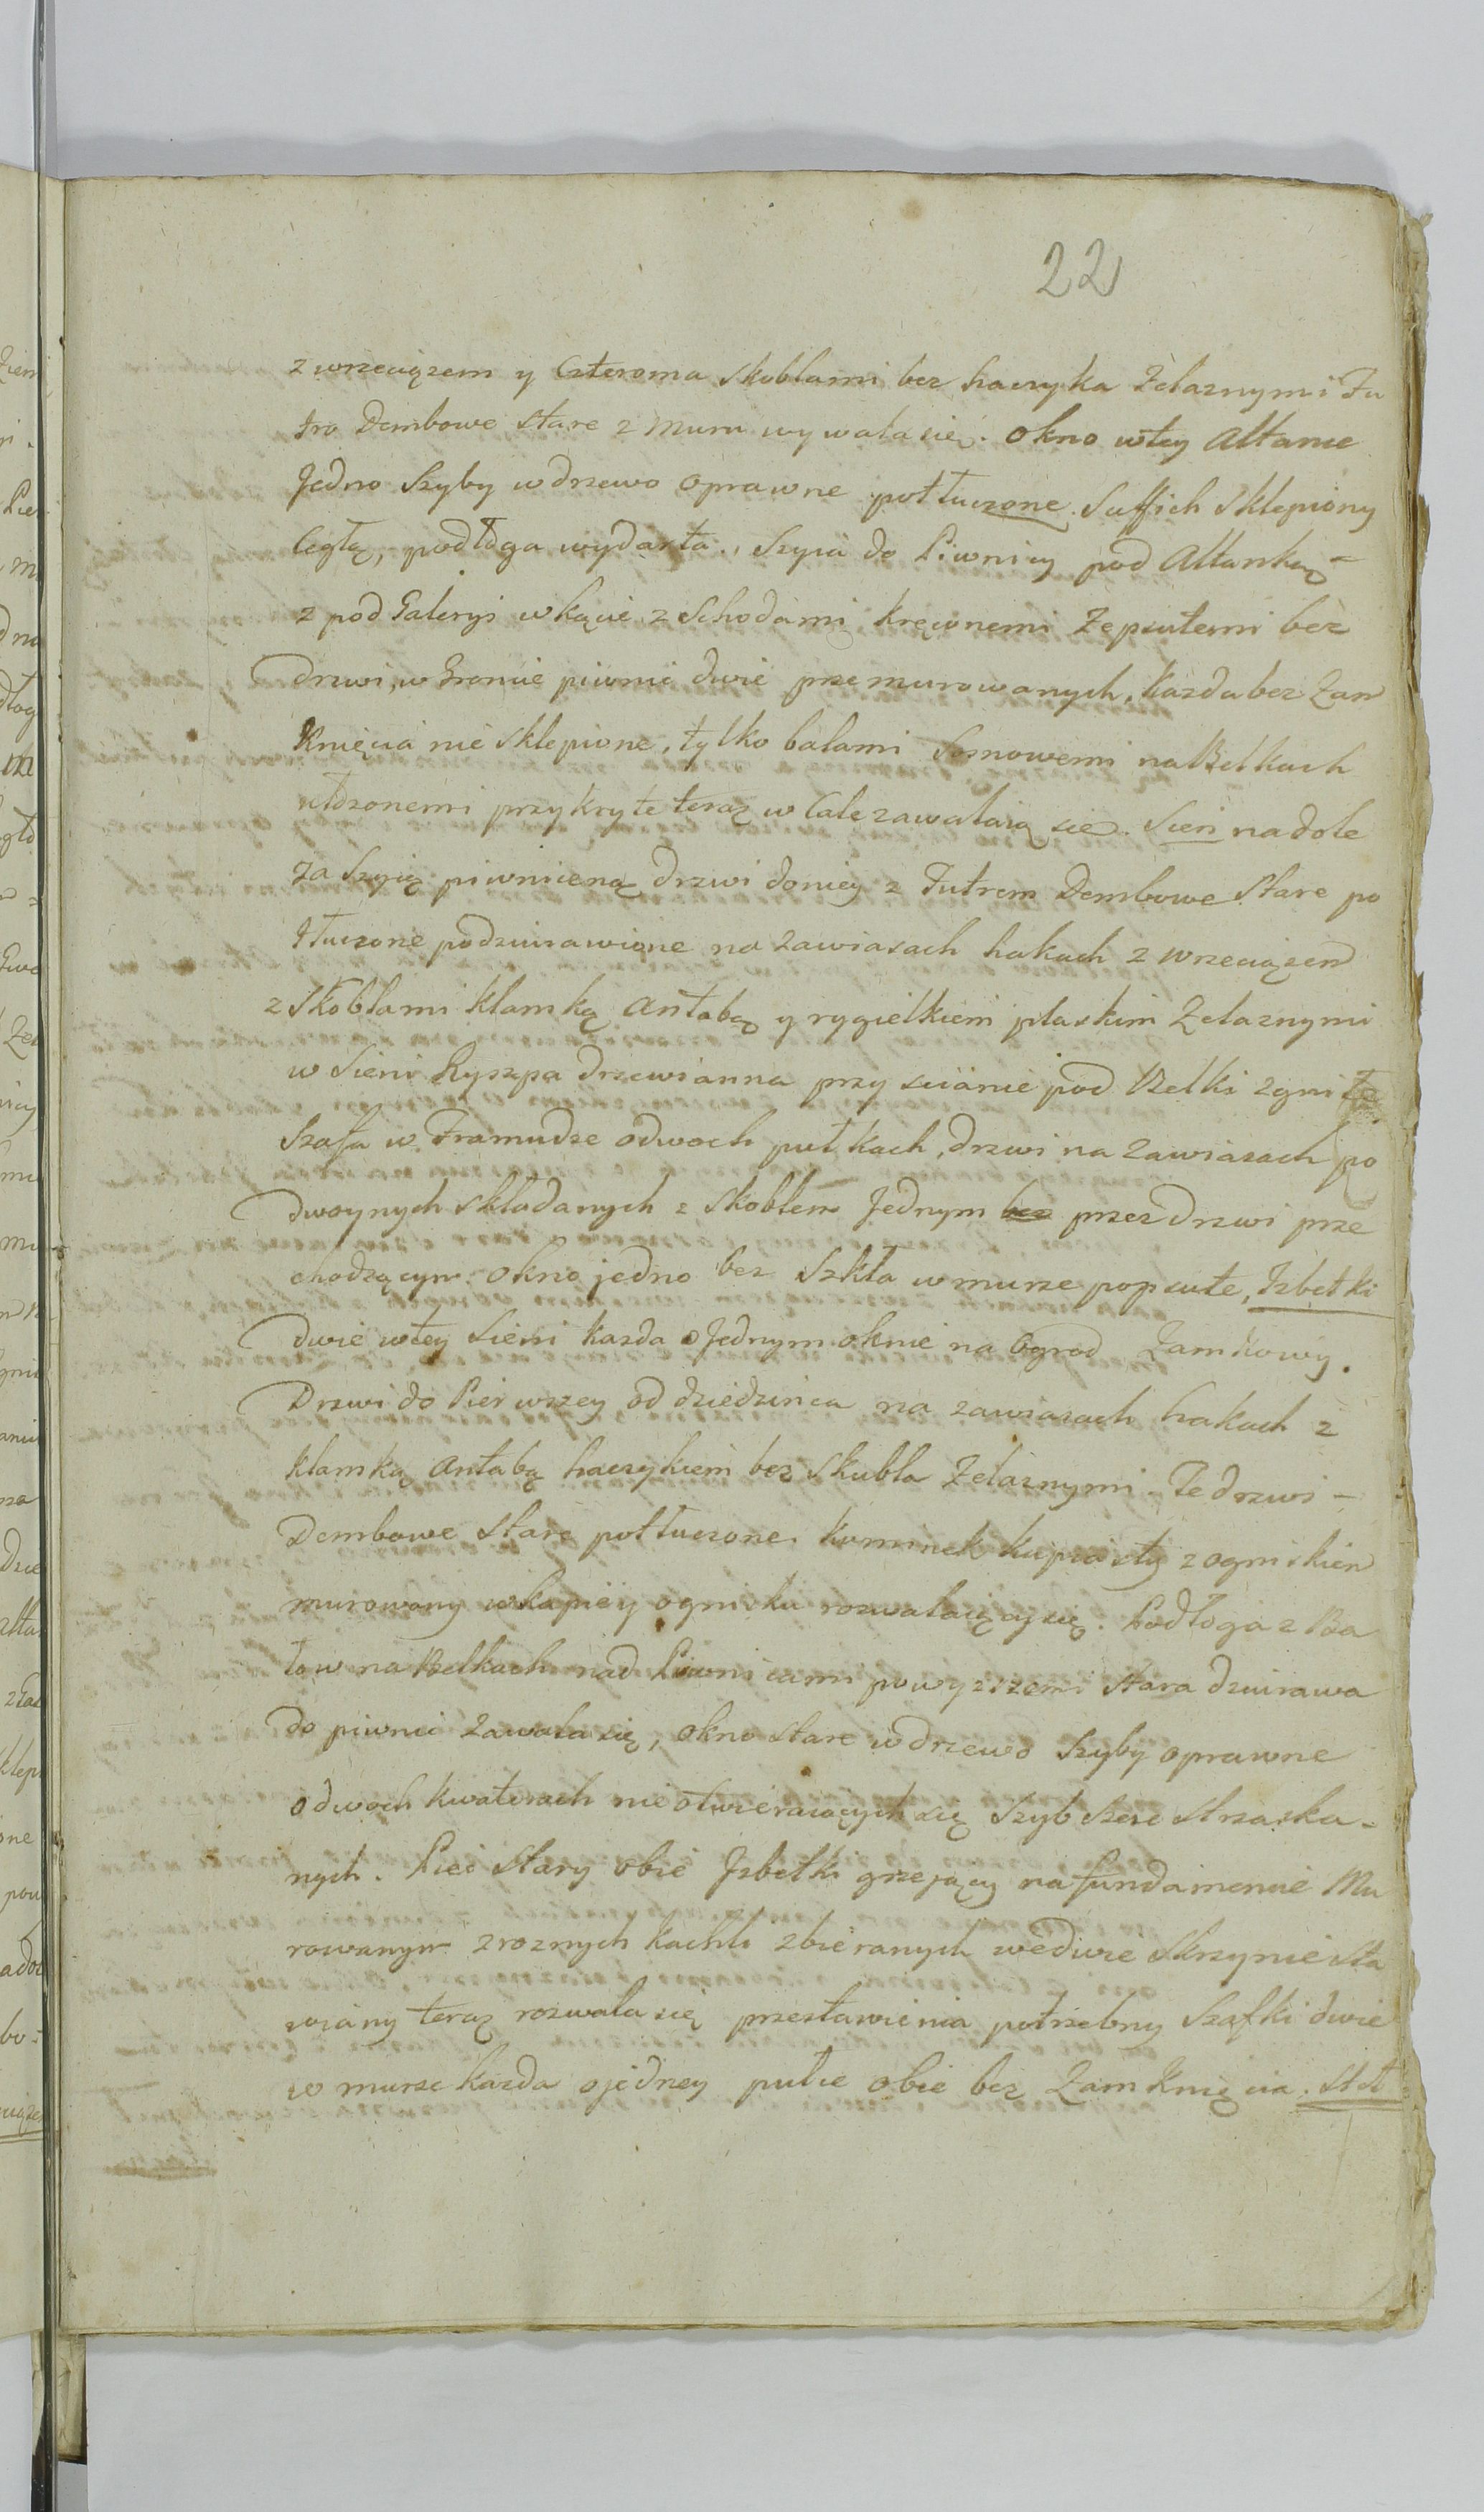 22
z wrzeciązem y Czteroma Skoblami bez haczyka Żelaznymi Fu
tro Dembowe stare z Muru wywala się. Okno wtey Altanie
Jedno Szyby w drzewo oprawne potłuczone. Suffich Sklepiony
Cegłą, podłoga wydarta., Szyia do Piwnicy pod Altanką =
z pod Galeryi w kącie z Schodami kręconemi Zepsutemi bez
drzwi, w Froncie piwnic dwie przemurowanych, każda bez Zam
Knięcia nie sklepione, tylko balami Sosnowemi na Belkach
ułożonemi przykryte teraz w Cale zawalaią się. Sień na dole
Za Szyią piwniczną drzwi doniey z Futrem Dembowe Stare po
tłuczone podziurawione na zawiasach hakach z wrzeciązem
z Skoblami klamką Antabą y rygielkiem płaskim Żelaznymi
w Sieni Ryszpa drzewianna przy scianie pod Belki zgniłe
Szafa w Framudze o dwoch pułkach, drzwi na Zawiasach po
dwoynych składanych z Skoblem Jednym bez przez drzwi prze
chodzącym. Okno jedno bez Szkła w murze popsute, Izbetki
dwie wtey Sieni każda o Jednym oknie na Ogrod Zamkowy.
Drzwi do Pierwszey od dziedzinca na zawiasach hakach z
klamką Antabą haczykiem bez Skubla Żelaznymi - Te drzwi -
Dembowe Stare potłuczone. Kominek kapiasty z ogniskiem
murowany w kapie y ognisku rozwalaiący się. Podłoga z Ba
low na Belkach nad Piwnicami powyzszemi Stara dziurawa
do piwnic Zawala się, okno stare w drzewo Szyby oprawne
o dwoch kwaterach nie otwieraiących się Szyb Szesc strzaska-
nych. Piec Stary obie Izbetki grzejący na fundamencie Mu
rowanym z roznych kachli zbieranych we dwie Skrzynie Sta
wiany teraz rozwala się przestawienia potrzebny Szafki dwie
w murze każda o jedney pułce obie bez Zamknięcia.